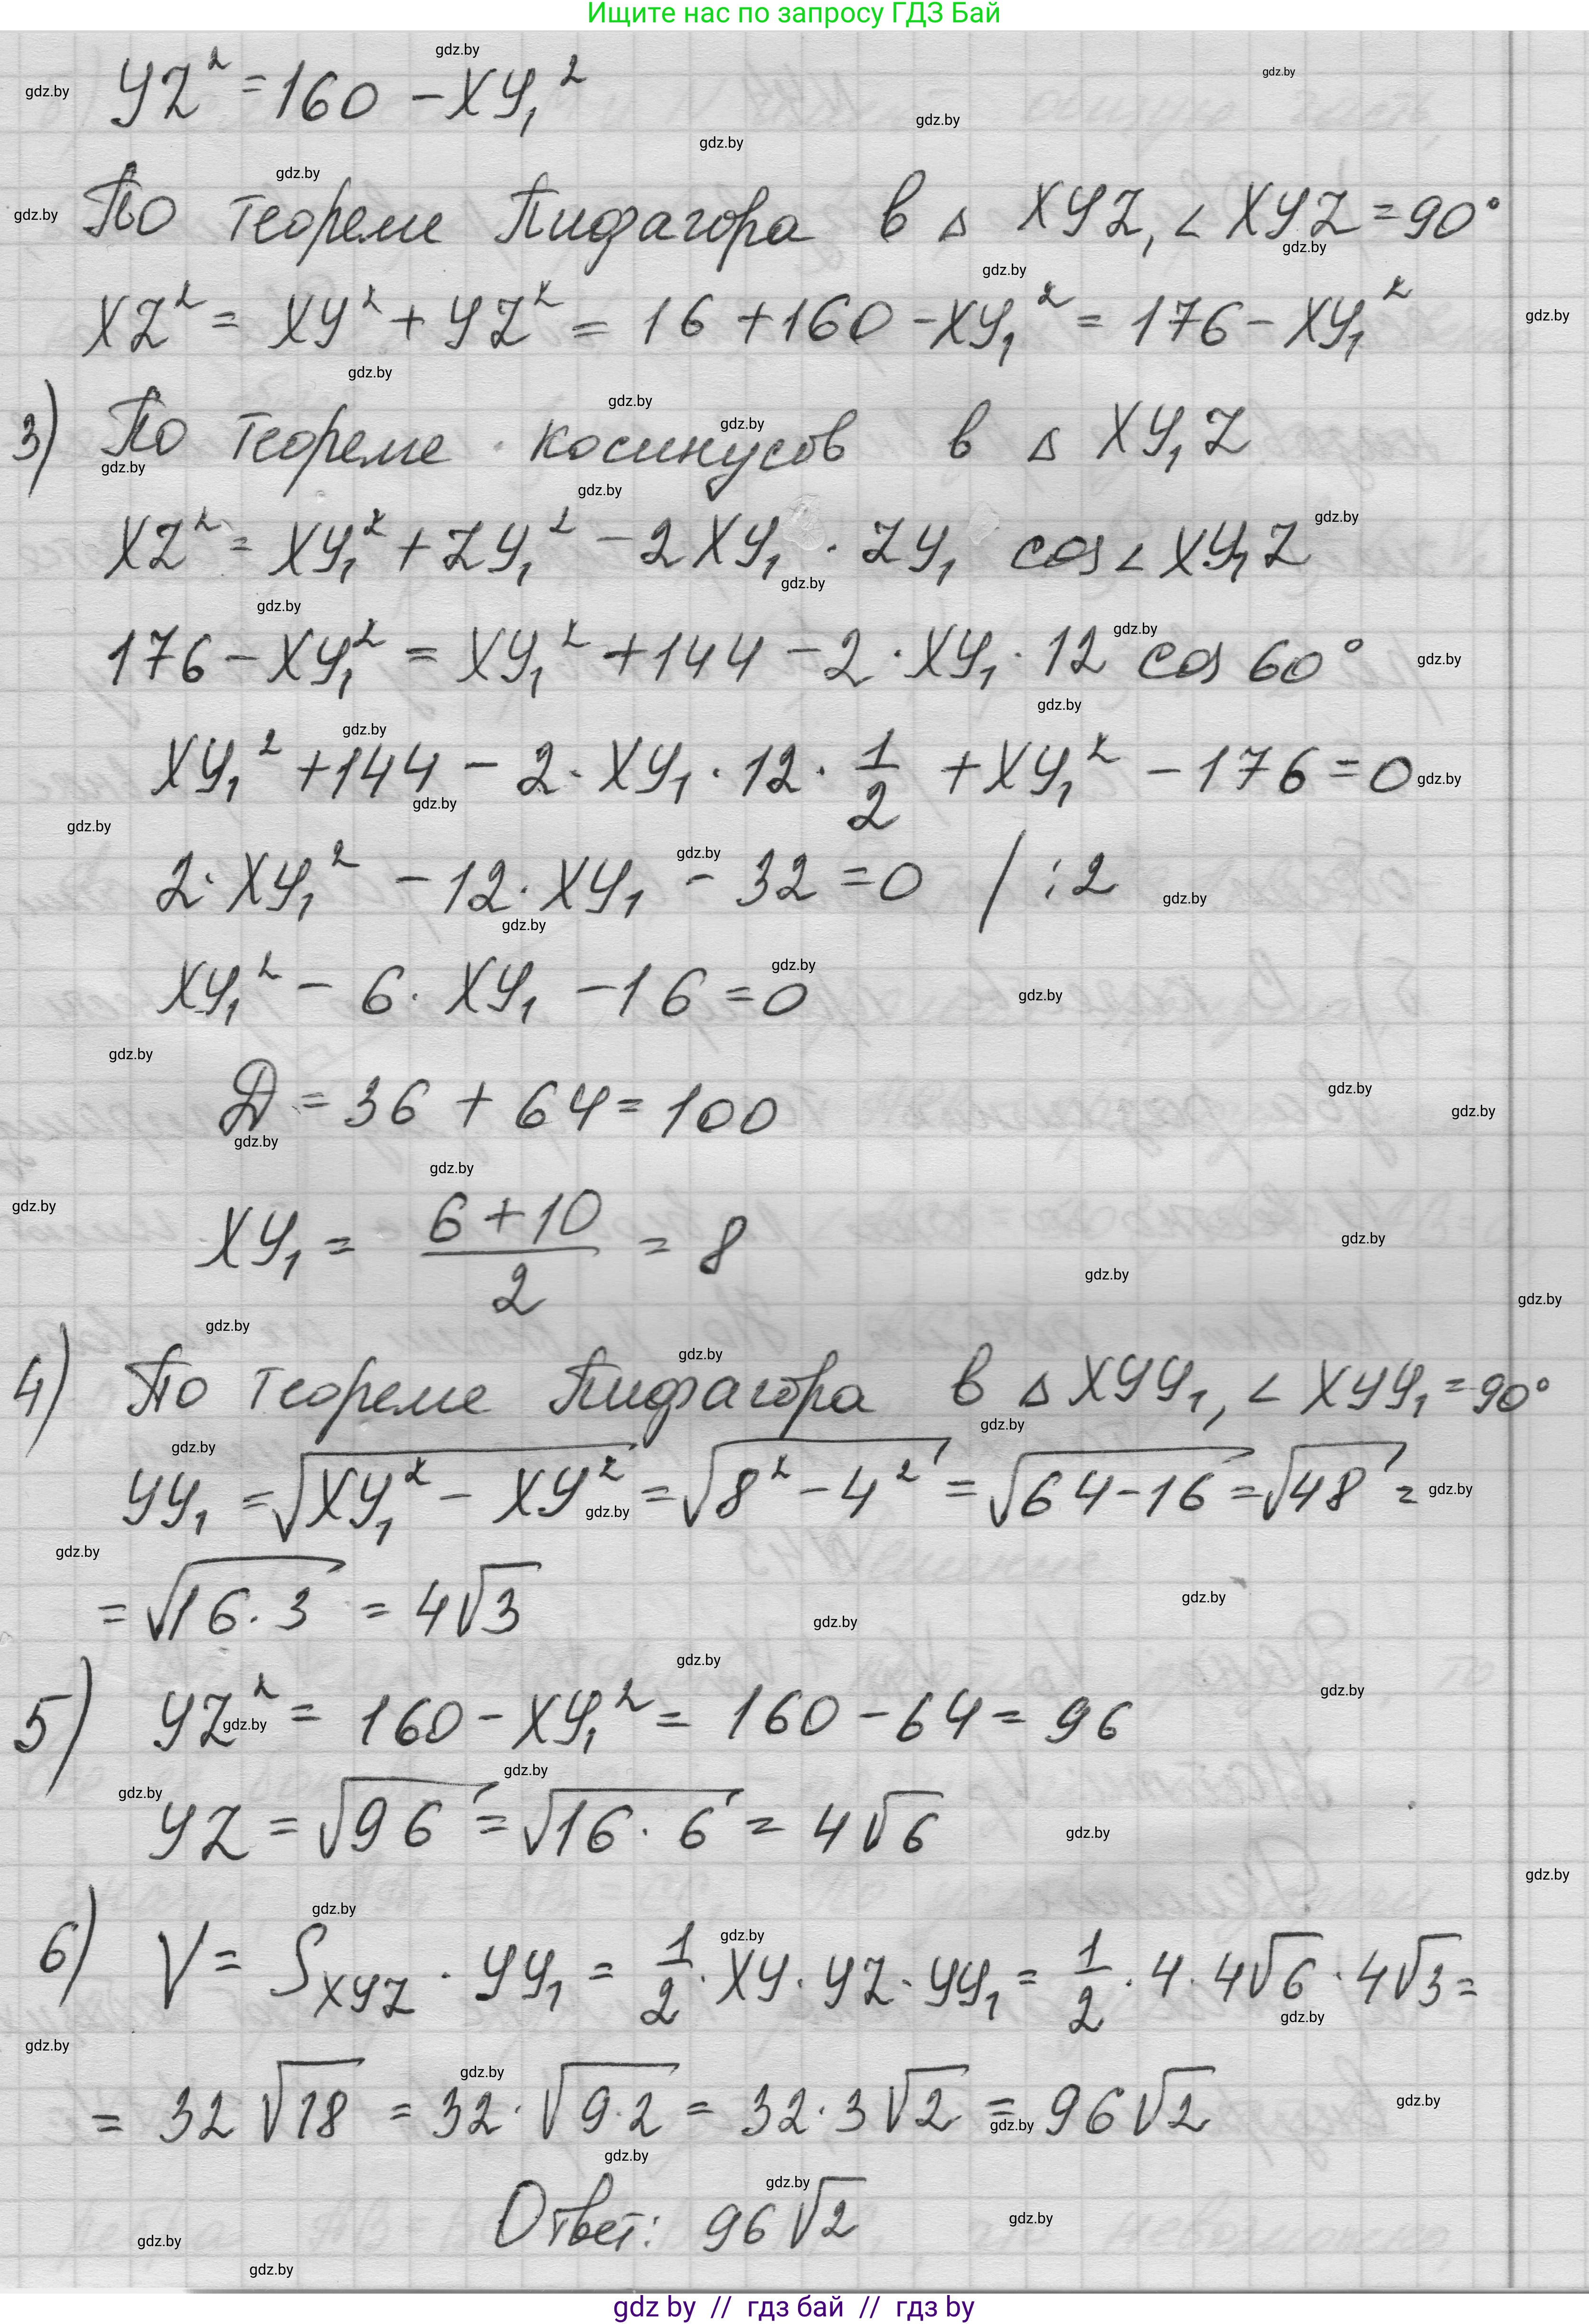 Ищите нас по запросу ГДЗ Бай
YZ² = 160 − XY₁²
По теореме Пифагора в △ XYZ, ∠ XYZ = 90°
XZ² = XY² + YZ² = 16 + 160 − XY₁² = 176 − XY₁²
3) По теореме косинусов в △ XY₁Z
XZ² = XY₁² + ZY₁² − 2 XY₁ · ZY₁ cos ∠ XY₁Z
176 − XY₁² = XY₁² + 144 − 2 · XY₁ · 12 cos 60°
XY₁² + 144 − 2 · XY₁ · 12 · 1/2 + XY₁² − 176 = 0
2 · XY₁² − 12 · XY₁ − 32 = 0 / : 2
XY₁² − 6 · XY₁ − 16 = 0
Д = 36 + 64 = 100
XY₁ = (6 + 10)/2 = 8
4) По теореме Пифагора в △ XYY₁, ∠ XYY₁ = 90°
YY₁ = √(XY₁² − XY²) = √(8² − 4²) = √(64 − 16) = √48 =
= √(16 · 3) = 4√3
5) YZ² = 160 − XY₁² = 160 − 64 = 96
YZ = √96 = √(16 · 6) = 4√6
6) V = S_XYZ · YY₁ = 1/2 · XY · YZ · YY₁ = 1/2 · 4 · 4√6 · 4√3 =
= 32 √18 = 32 · √(9 · 2) = 32 · 3 √2 = 96 √2
Ответ: 96 √2
gdz by // гдз бай // гдз by